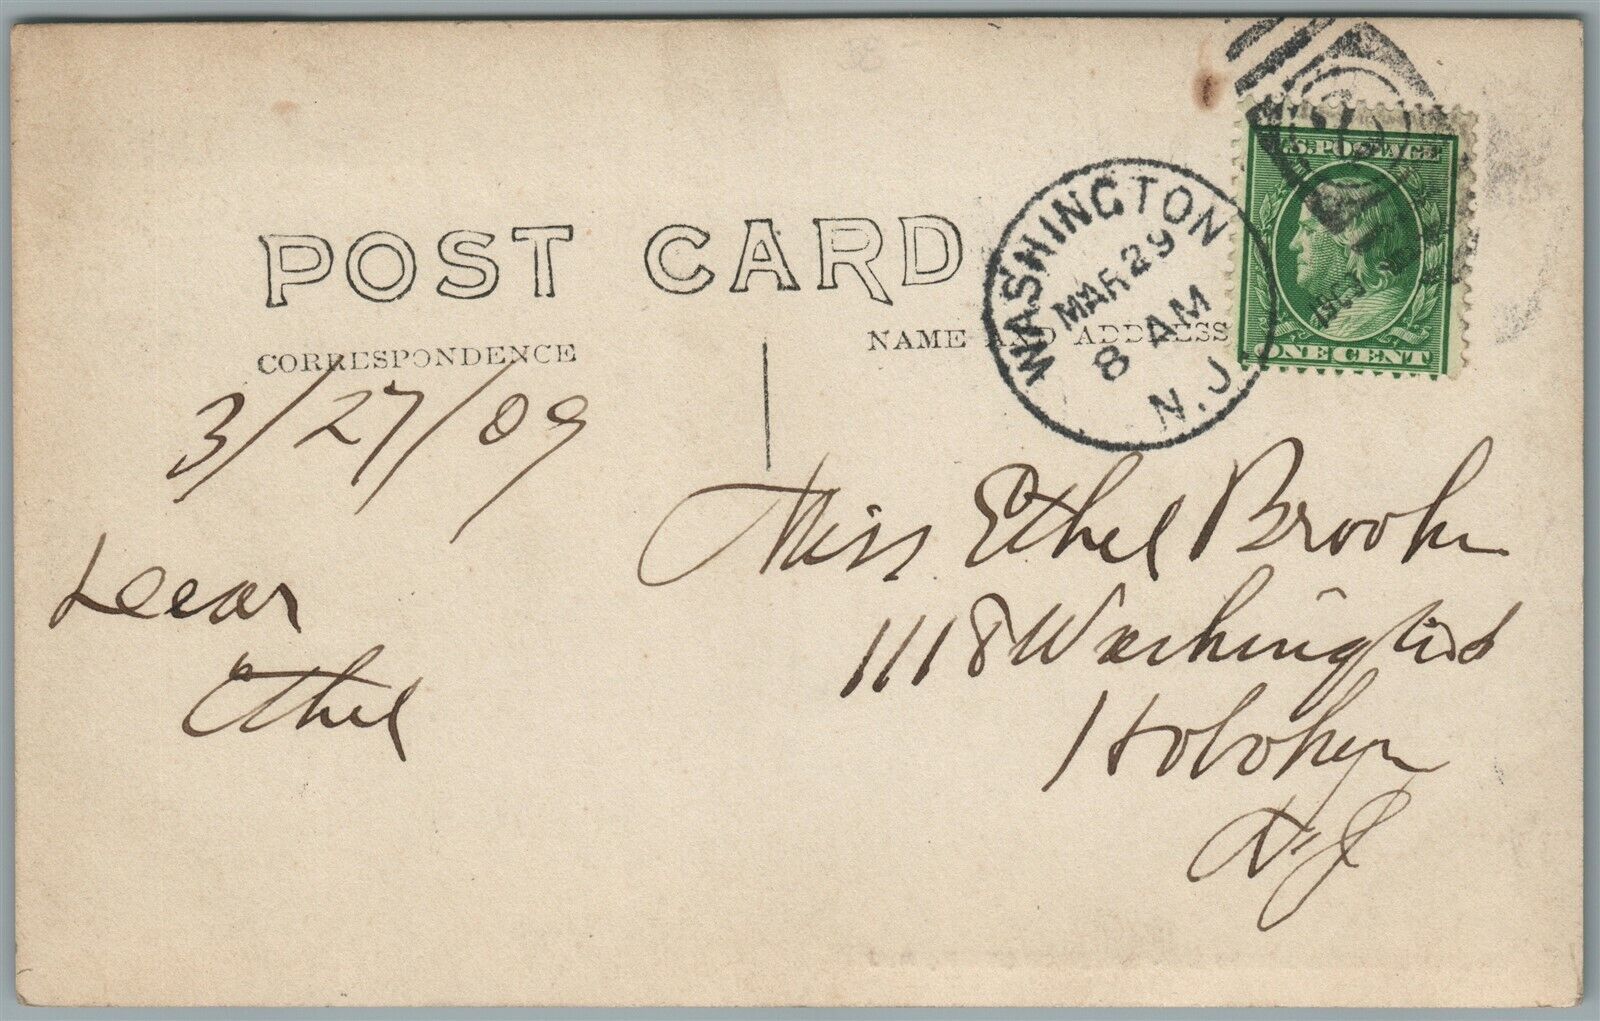 POST CARD
CORRESPONDENCE
NAME AND ADDRESS
WASHINGTON
MAR 29
8 AM
N.J.
U.S. POSTAGE
ONE CENT
3/27/09
Dear
Ethel
Miss Ethel
1118 Washington
Hoboken
N.J.